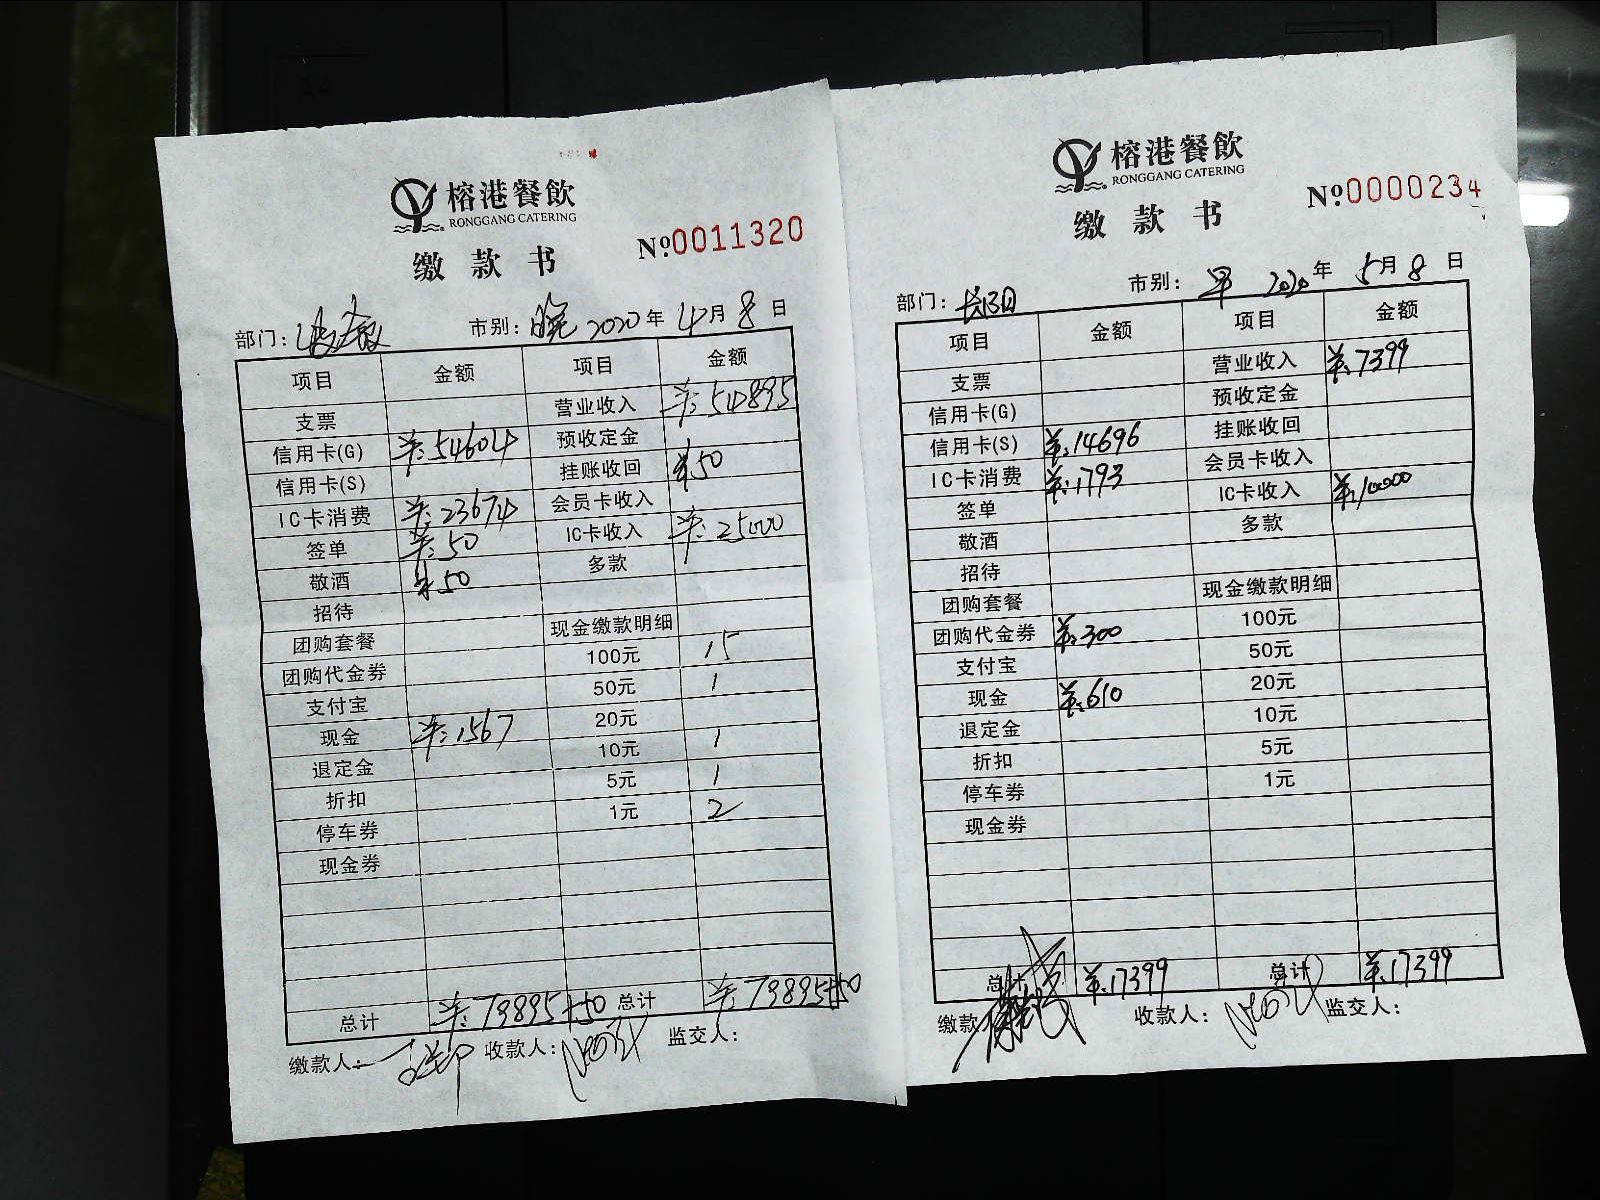 榕港餐飲
RONGGANG CATERING
缴款书
№0011320
部门: 市别: 晚 2020年 4月 8日
项目 金额 项目 金额
支票 营业收入 ¥:54895
信用卡(G) ¥:54604 预收定金
信用卡(S) 挂账收回 ¥50
IC卡消费 ¥:23674 会员卡收入
签单 ¥:50 IC卡收入 ¥:25000
敬酒 ¥50 多款
招待
团购套餐 现金缴款明细
团购代金券 100元 15
支付宝 50元 1
现金 ¥:1567 20元
退定金 10元 1
折扣 5元 1
停车券 1元 2
现金券
总计 ¥:79895+50 总计 ¥:79895+50
缴款人: 收款人: 监交人:
榕港餐飲
RONGGANG CATERING
缴款书
№0000234
部门: 市别: 早 2020年 5月 8日
项目 金额 项目 金额
支票 营业收入 ¥:7399
信用卡(G) 预收定金
信用卡(S) ¥:14696 挂账收回
IC卡消费 ¥:1793 会员卡收入
签单 IC卡收入 ¥:10000
敬酒 多款
招待
团购套餐 现金缴款明细
团购代金券 ¥:300 100元
支付宝 50元
现金 ¥:610 20元
退定金 10元
折扣 5元
停车券 1元
现金券
总计 ¥:17399 总计 ¥:17399
缴款 收款人: 监交人: